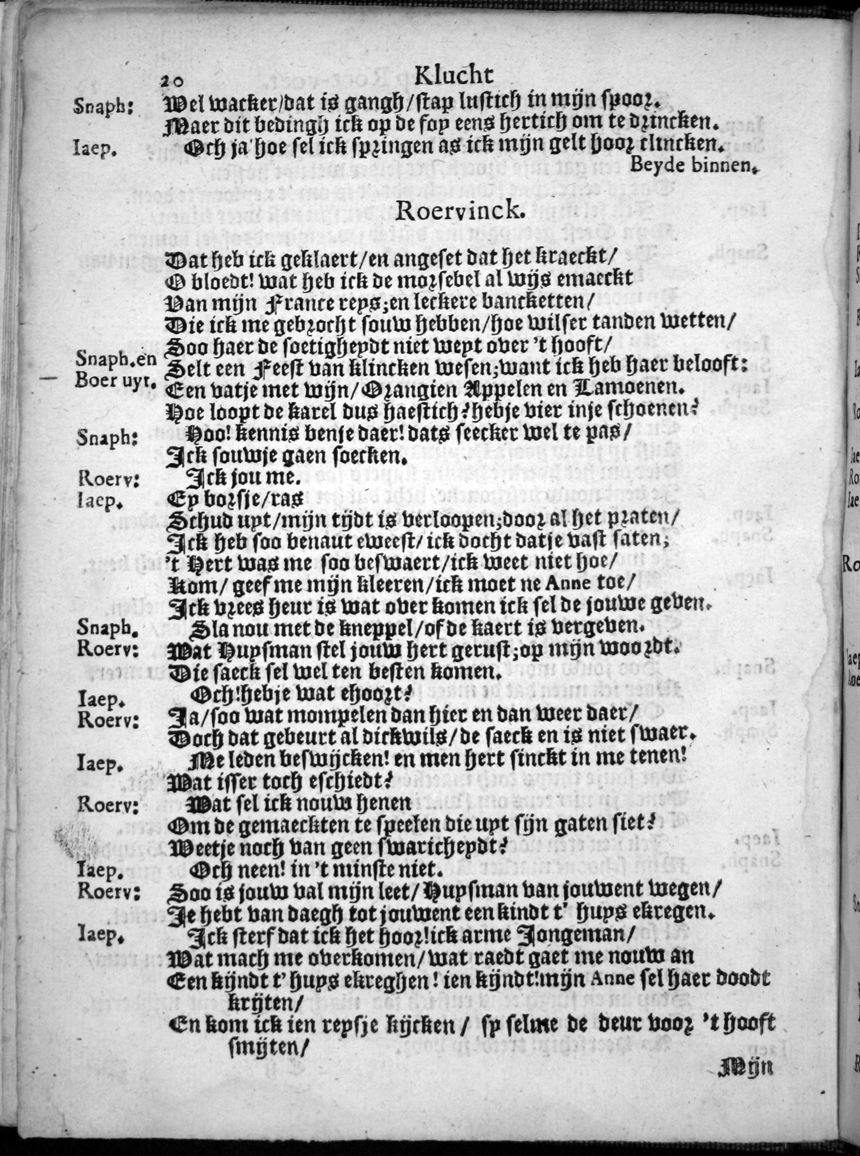 20 Klucht
Snaph: Wel wacker/dat is gangh/stap lustich in mijn spoor.
Maer dit bedingh ick op de sop eens hertich om te drincken.
Iaep. Och ja hoe sel ick springen as ick mijn gelt hoor clincken.
Beyde binnen.
Roervinck.
Dat heb ick geklaert/en angeset dat het kraeckt/
O bloedt! wat heb ick de morsebel al wijs emaeckt
Van mijn France reys;en leckere bancketten/
Die ick me gebrocht souw hebben/hoe wilser tanden wetten/
Soo haer de soetigheydt niet weyt over 't hooft/
Snaph.en Selt een Feest van klincken wesen;want ick heb haer belooft:
Boer uyt. Een vatje met wijn/Orangien Appelen en Lamoenen.
Hoe loopt de karel dus haestich? hebje vier inje schoenen?
Snaph: Hoo! kennis benje daer! dats seecker wel te pas/
Ick souwje gaen soecken.
Roerv: Ick jou me.
Iaep. Ey borsje/ras
Schud uyt/mijn tijdt is verloopen;door al het praten/
Ick heb soo benaut eweest/ick docht datje vast saten;
't Hert was me soo beswaert/ick weet niet hoe/
Kom/ geef me mijn kleeren/ick moet ne Anne toe/
Ick vrees heur is wat over komen ick sel de jouwe geven.
Snaph. Sla nou met de kneppel/of de kaert is vergeven.
Roerv: Wat Huysman stel jouw hert gerust;op mijn woordt.
Die saeck sel wel ten besten komen.
Iaep. Och!hebje wat ehoort?
Roerv: Ja/soo wat mompelen dan hier en dan weer daer/
Doch dat gebeurt al dickwils/de saeck en is niet swaer.
Iaep. Me leden beswijcken! en men hert sinckt in me tenen!
Wat isser toch eschiedt?
Roerv: Wat sel ick nouw henen
Om de gemaeckten te speelen die uyt sijn gaten siet?
Weetje noch van geen swaricheydt?
Iaep. Och neen! in 't minste niet.
Roerv: Soo is jouw val mijn leet/Huysman van jouwent wegen/
Je hebt van daegh tot jouwent een kindt t' huys ekregen.
Iaep. Ick sterf dat ick het hoor!ick arme Jongeman/
Wat mach me overkomen/wat raedt gaet me nouw an
Een kijndt t'huys ekreghen! ien kijndt!mijn Anne sel haer doodt
krijten/
En kom ick ien reysje kijcken / sy selme de deur voor 't hooft
smijten/
Mijn